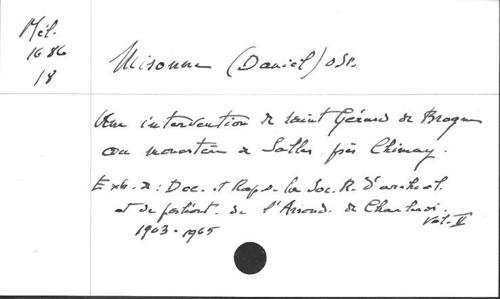 Mél.
1686
/8
Misonne (Daniel) OSB.
Une intervention de saint Gérard de Brogne
au monastère de Salles près Chimay.
Extr. de: Doc. et Rap. de la Soc. R. d'archéol.
et de paléont. de l'Arrond. de Charleroi.
Vol. II
1903-1965